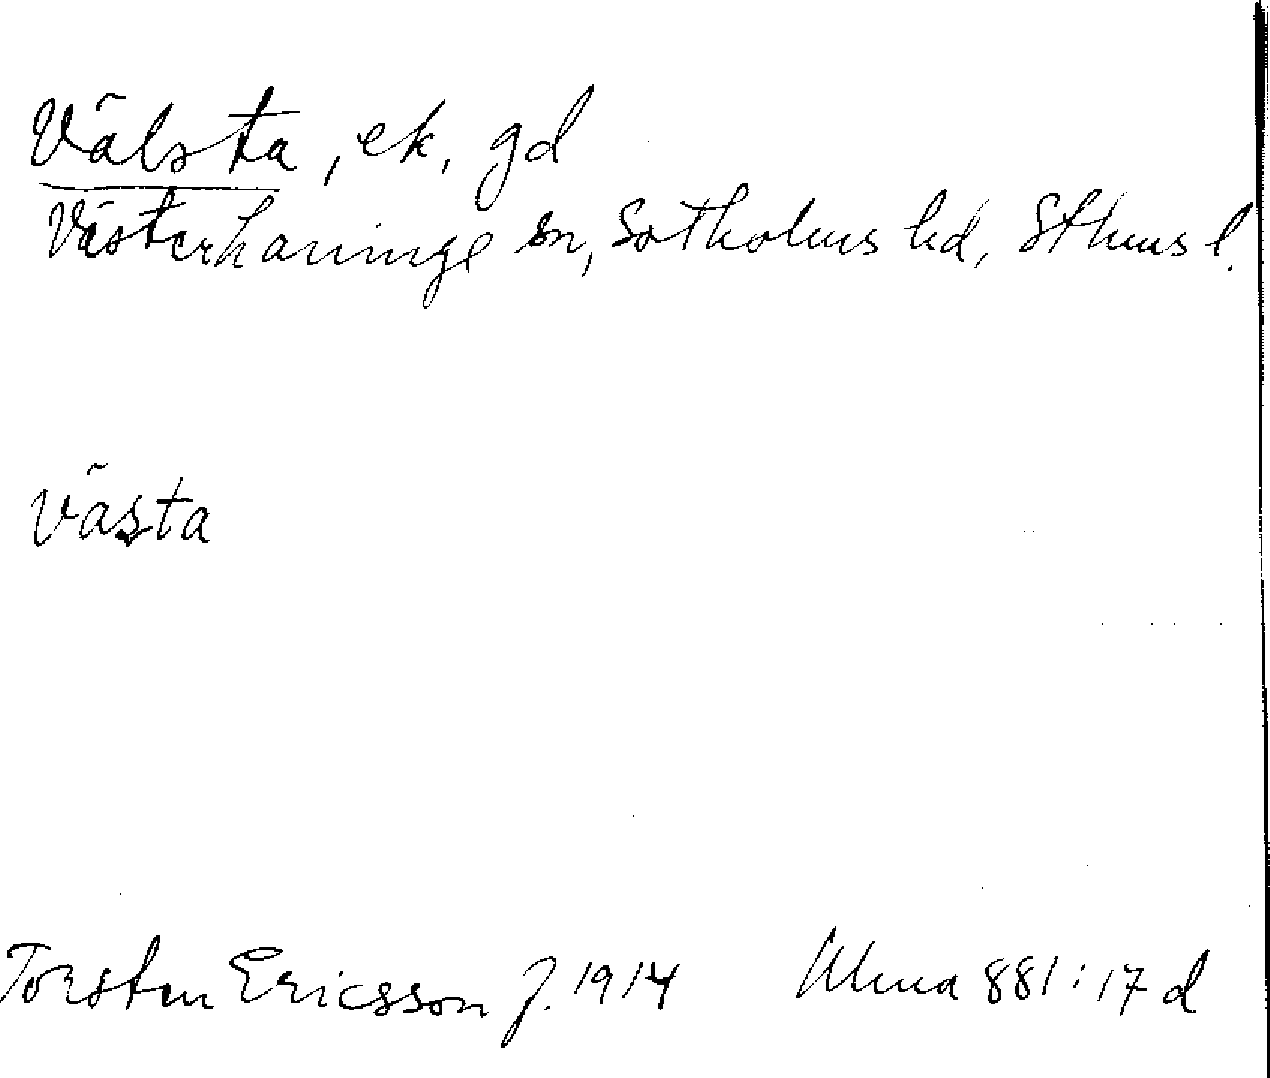 Välsta, ek, gd
Västerhaninge sn, Sotholms hd, Sthms l.
västa
Torsten Ericsson f. 1914 Uma 881:17 d